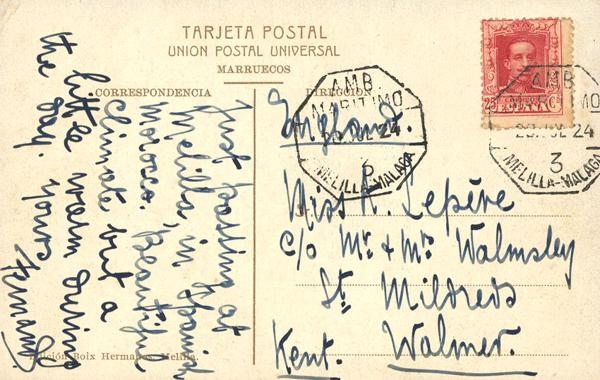 TARJETA POSTAL
UNION POSTAL UNIVERSAL
MARRUECOS
CORRESPONDENCIA
DIRECCION
Just passing at
Melilla in Spanish
Morocco. Beautiful
climate but a
little warm during
the day. Yours
England.
Miss K. Lepère
c/o Mr. & Mrs. Walmsley
St. Mildreds
Walmer.
Kent.
AMB.
MARITIMO
JUL 24
3
MELILLA-MALAGA
25
ESPAÑA
AMB
MARITIMO
JUL 24
3
MELILLA-MALAGA
Edición Boix Hermanos, Melilla.